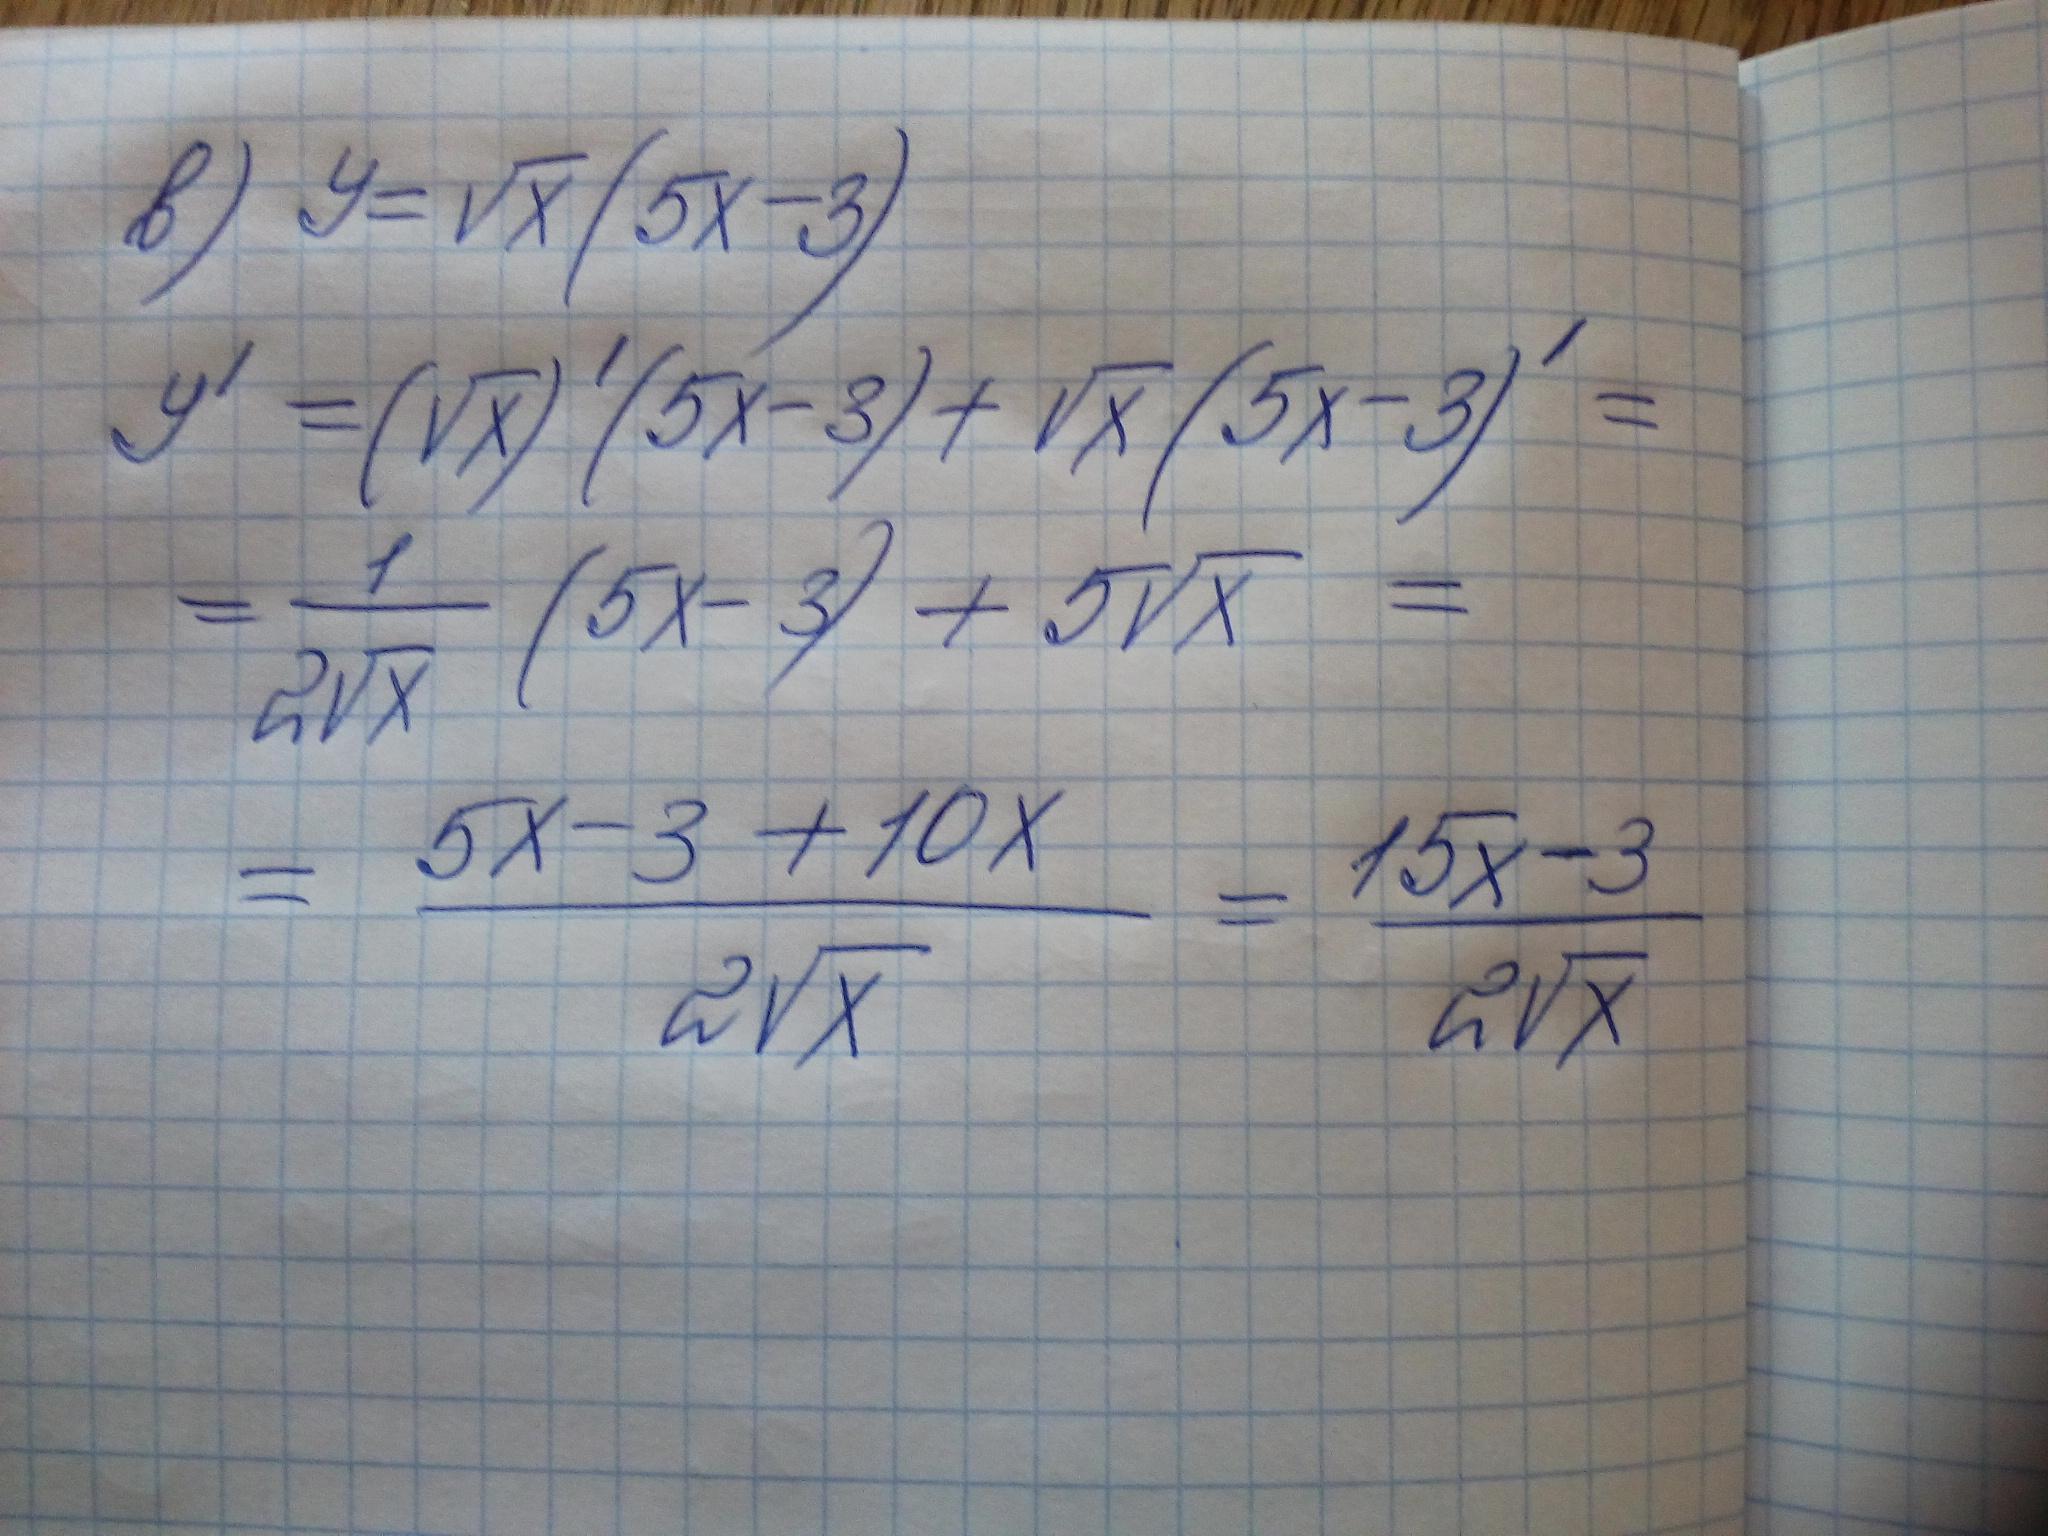 в) y = √x (5x - 3)
y' = (√x)' (5x - 3) + √x (5x - 3)' =
= 1/(2√x) (5x - 3) + 5√x =
= (5x - 3 + 10x)/(2√x) = (15x - 3)/(2√x)